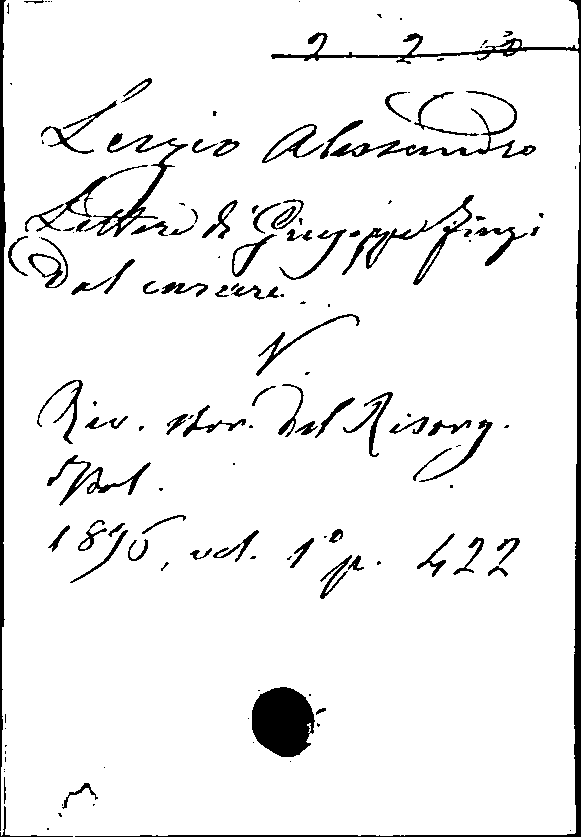 2. 2. 50
Luzio Alessandro
Lettere di Giuseppe Finzi
dal carcere.
V.
Riv. stor. del Risorg.
Ital.
1896, vol. 1º p. 422